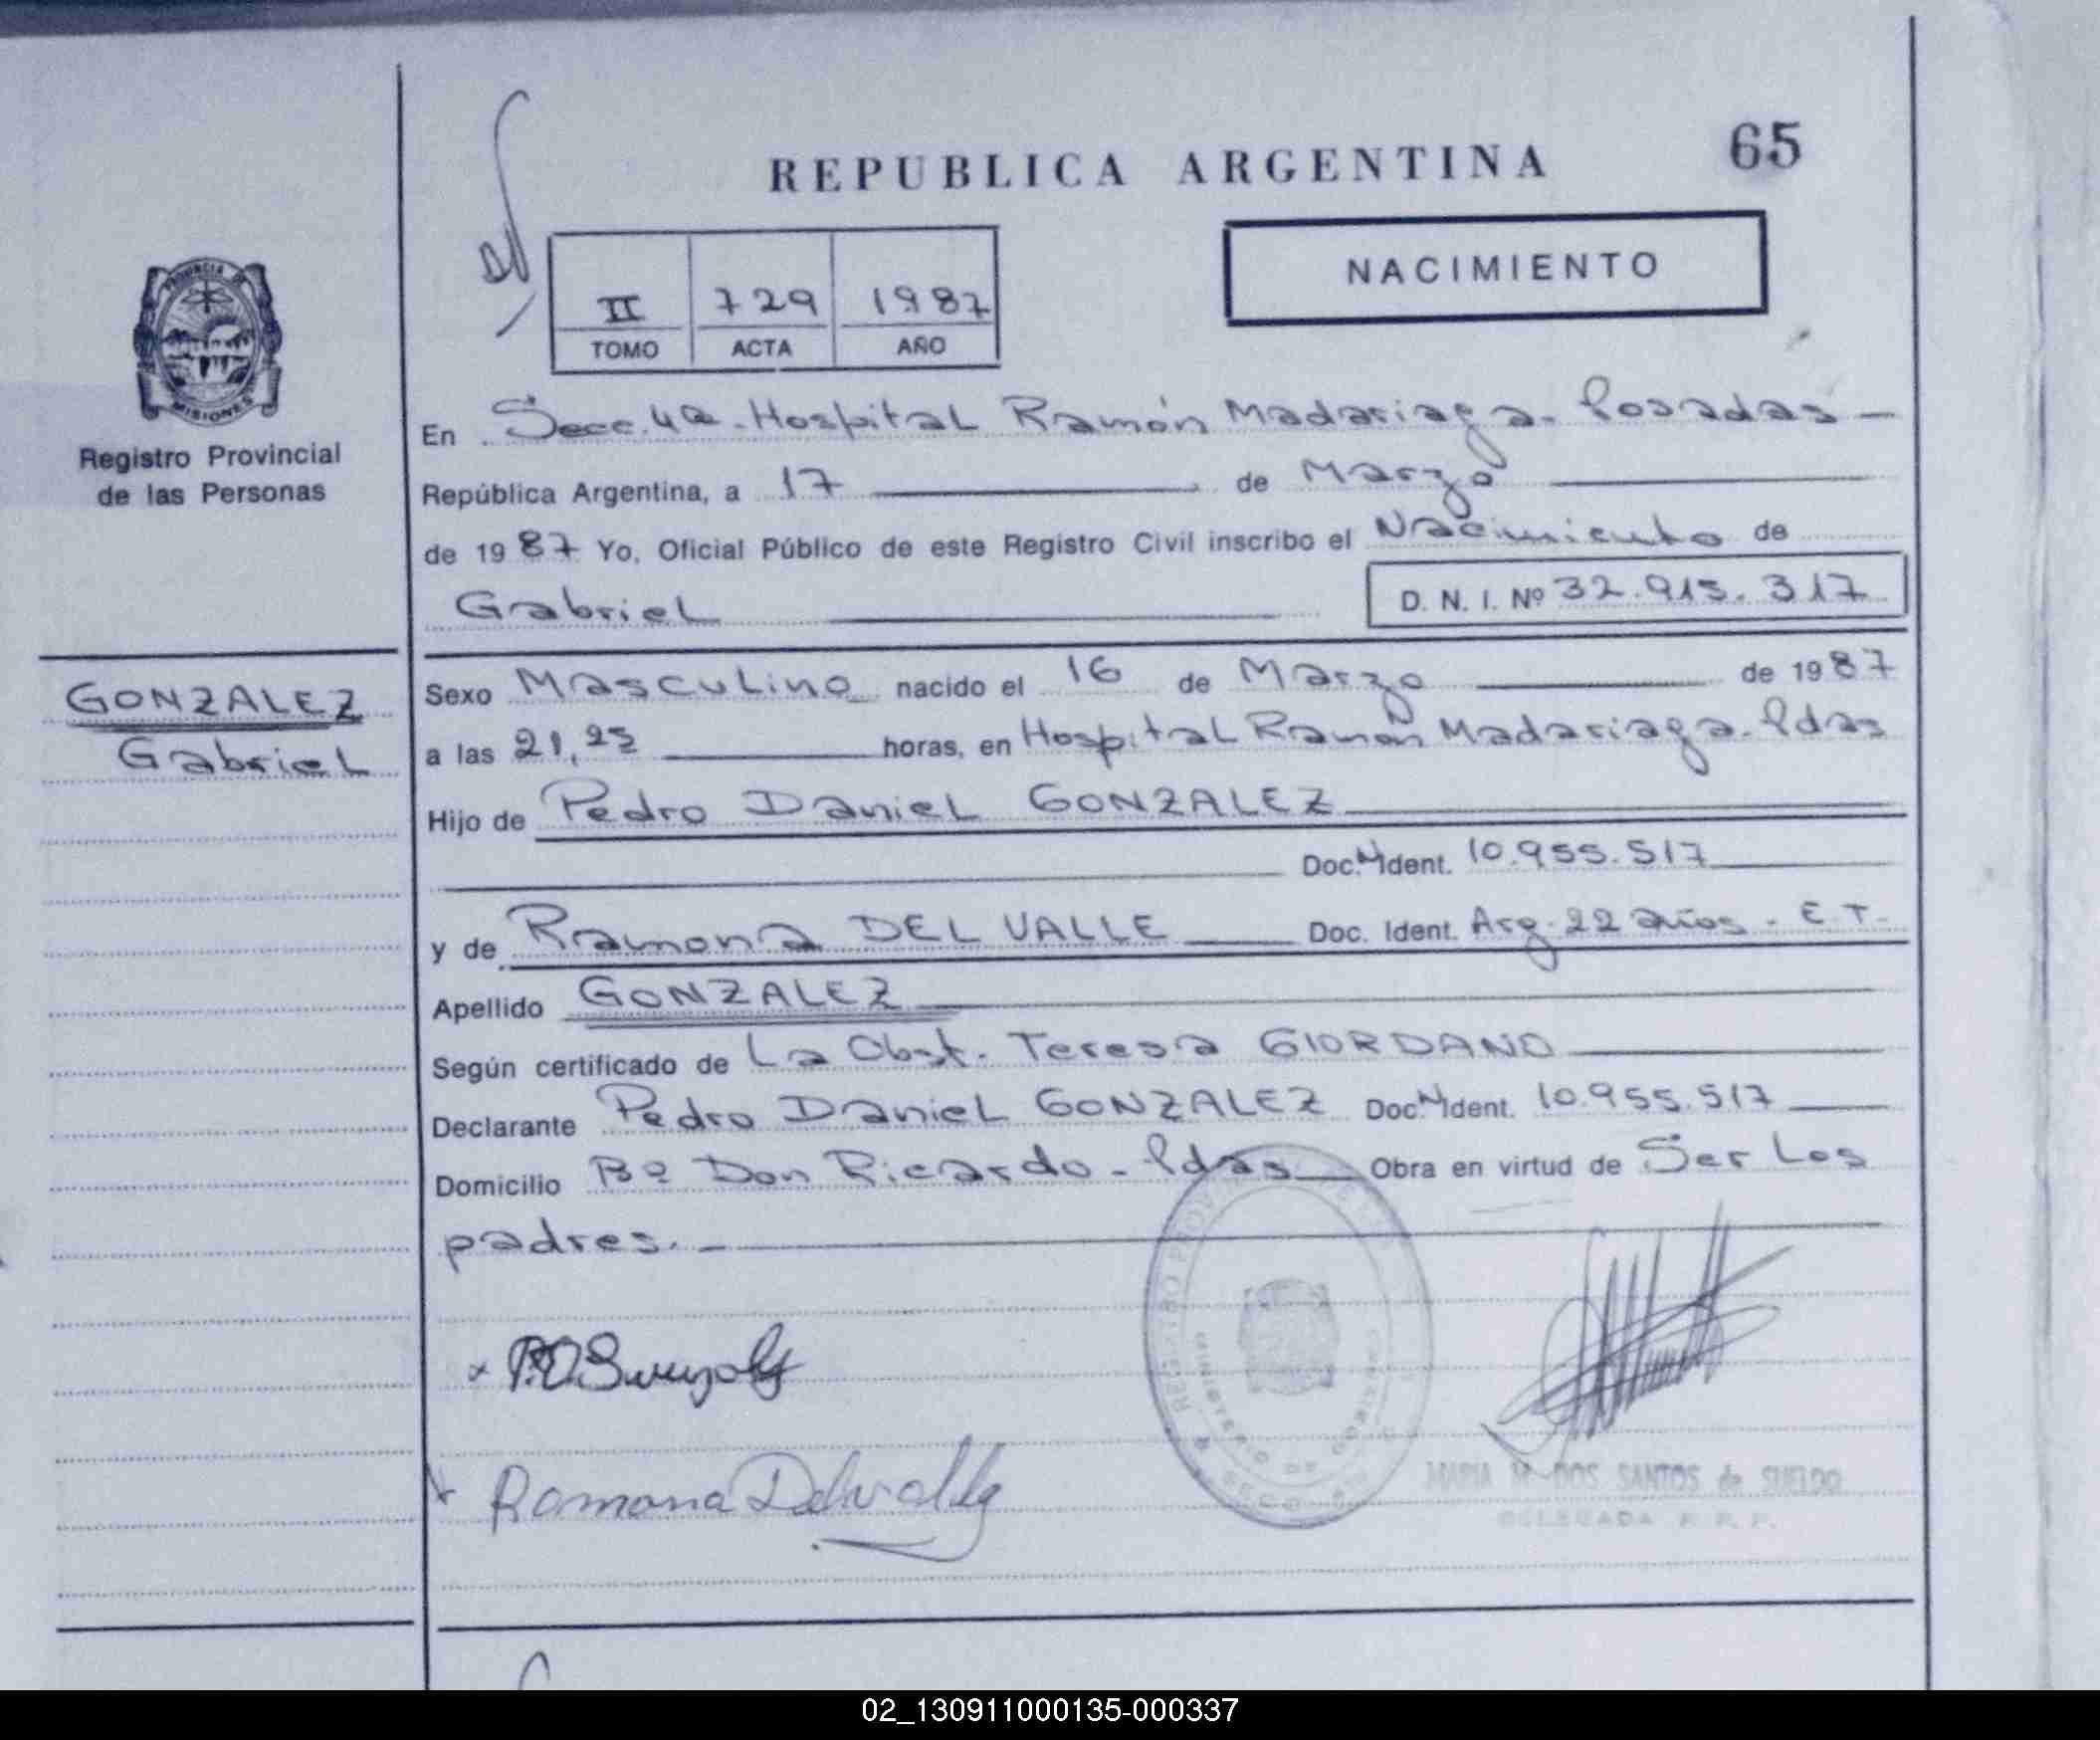 REPUBLICA ARGENTINA
65
II 729 1987
TOMO ACTA AÑO
NACIMIENTO
PROVINCIA DE
MISIONES
Registro Provincial
de las Personas
En Secc. 4a. Hospital Ramón Madariaga. Posadas
República Argentina, a 17 de Marzo
de 1987 Yo, Oficial Público de este Registro Civil inscribo el Nacimiento de
Gabriel
D. N. I. Nº 32.915.317
GONZALEZ
Gabriel
Sexo Masculino nacido el 16 de Marzo de 1987
a las 21,25 horas, en Hospital Ramón Madariaga. Pdas
Hijo de Pedro Daniel GONZALEZ
Doc. N Ident. 10.955.517
y de Ramona DEL VALLE Doc. Ident. Arg. 22 años. E.T.
Apellido GONZALEZ
Según certificado de La Obst. Teresa GIORDANO
Declarante Pedro Daniel GONZALEZ Doc N Ident. 10.955.517
Domicilio Bº Don Ricardo - Pdas Obra en virtud de Ser Los
padres.
Ramona Delvalle
REGISTRO
MINISTERIO DE
MARIA M. DOS SANTOS de SUELDO
DELEGADA R. P. P.
02_130911000135-000337